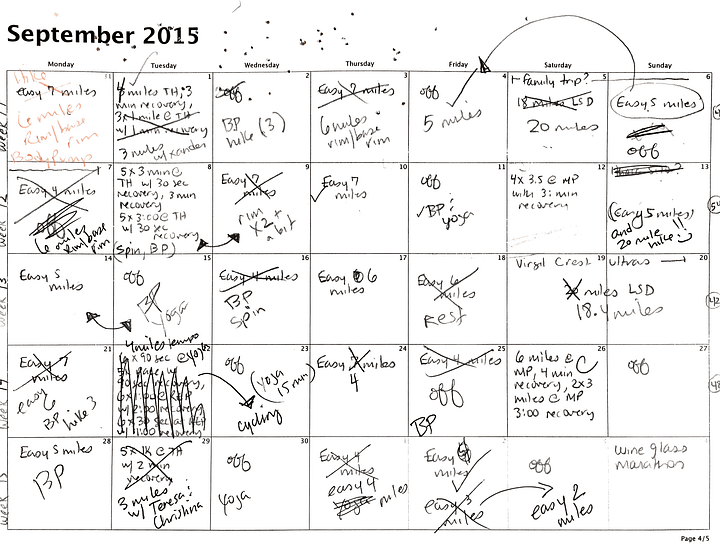 September 2015
Monday Tuesday Wednesday Thursday Friday Saturday Sunday
Week 11
31
hike
Easy 7 miles
6 miles
rim/base
rim
Bodypump
1
miles TH, 3
min recovery,
3x1 mile @ TH
w/ 1 min recovery
3 miles
w/ xander
2
off
BP
hike (3)
3
Easy 7 miles
6 miles
rim/base
rim
4
off
5 miles
5
Family trip?
18 miles LSD
20 miles
6
Easy 5 miles
off
Week 12
7
Easy 4 miles
off
6 miles
rim/base
rim
8
5 x 3 min @
TH w/ 30 sec
recovery, 3 min
recovery
5 x 3:00 @ TH
w/ 30 sec
recovery
(spin, BP)
9
Easy 7
miles
rim
x2 +
a bit
10
Easy 7
miles
11
off
BP &
yoga
12
4 x 3.5 @ MP
with 3: min
recovery
13
(Easy 5 miles)
and
20 mile
hike!!
Week 13
14
Easy 5
miles
15
off
BP
Yoga
16
Easy 4 miles
BP
Spin
17
Easy 6
miles
18
Easy 6
miles
Rest
19
Virgil Crest Ultras
20 miles LSD
18.4 miles
20
Week 14
21
Easy 7
miles
easy
6
BP hike 3
22
4 miles tempo
@ yoga
6 x 90 sec @
5k pace w/
90 sec recovery,
w/ 2:00 recovery
6 x 30 sec @ REP
w/ 1:00 recovery
23
off
(yoga
15 min)
cycling
24
Easy 7 miles
4
25
Easy 4 miles
off
BP
26
6 miles @
MP, 4 min
recovery, 2x3
miles @ MP
3:00 recovery
27
off
Week 15
28
Easy 5 miles
BP
29
5x1K @ TH
w/ 2 min
recovery
3 miles
w/ Teresa &
Christina
30
off
Yoga
1
Easy 4
miles
easy 4
yoga miles
2
Easy
miles
easy 3
miles
off
easy 2
miles
wine glass
marathon
Page 4/5